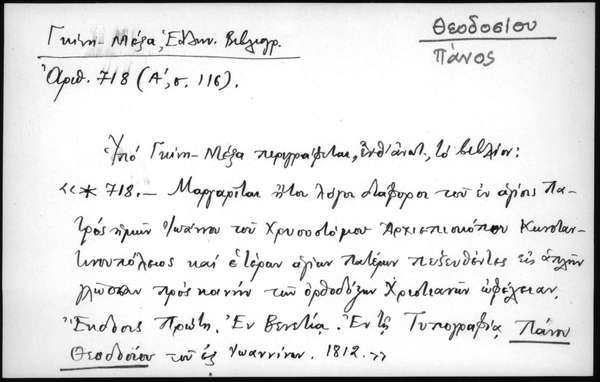 Γκίνη - Μέξα, Ἑλλην. Βιβλιογρ.
Θεοδοσίου
Πάνος
Ἀριθ. 718 (Α', σ. 116).
Ὑπό Γκίνη - Μέξα περιγράφεται, ἐνθ' ἀνωτ., τό βιβλίον:
«* 718. — Μαργαρῖται ἤτοι λόγοι διάφοροι τοῦ ἐν ἁγίοις Πα-
τρός ἡμῶν Ἰωάννου τοῦ Χρυσοστόμου Ἀρχιεπισκόπου Κωνσταν-
τινουπόλεως καί ἑτέρων ἁγίων πατέρων πεζευθέντες εἰς ἁπλῆν
γλῶσσαν πρός κοινήν τῶν ὀρθοδόξων Χριστιανῶν ὠφέλειαν.
Ἔκδοσις Πρώτη. Ἐν Βενετίᾳ. Ἐν τῇ Τυπογραφίᾳ Πάνου
Θεοδοσίου τοῦ ἐξ Ἰωαννίνων. 1812.»